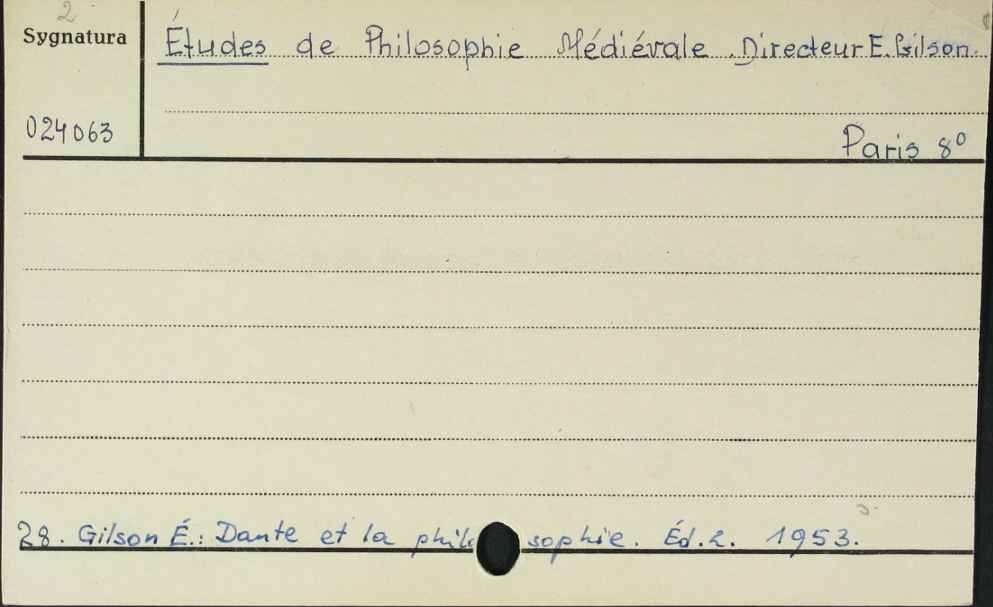 2
Sygnatura
Études de Philosophie Médiévale. Directeur E. Gilson.
024063
Paris 8º
28. Gilson É.: Dante et la philosophie. Éd. 2. 1953.